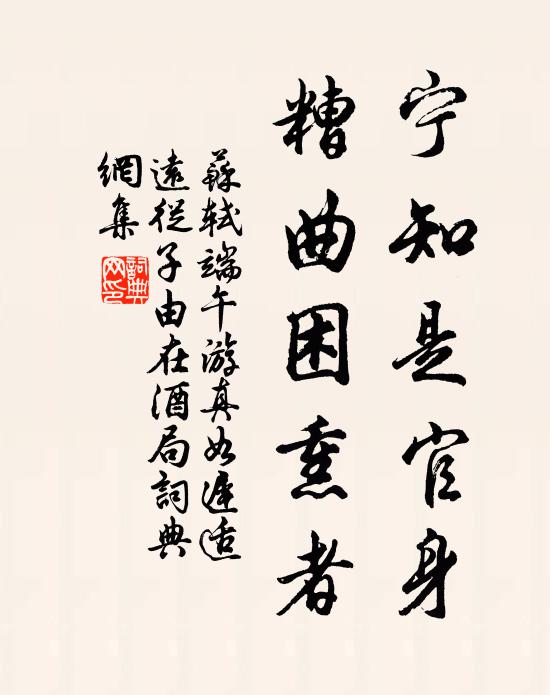 宁知是官身
糟曲困熏者
蘇軾端午游真如遲适
遠從子由在酒局詞典
網集
詞典網印